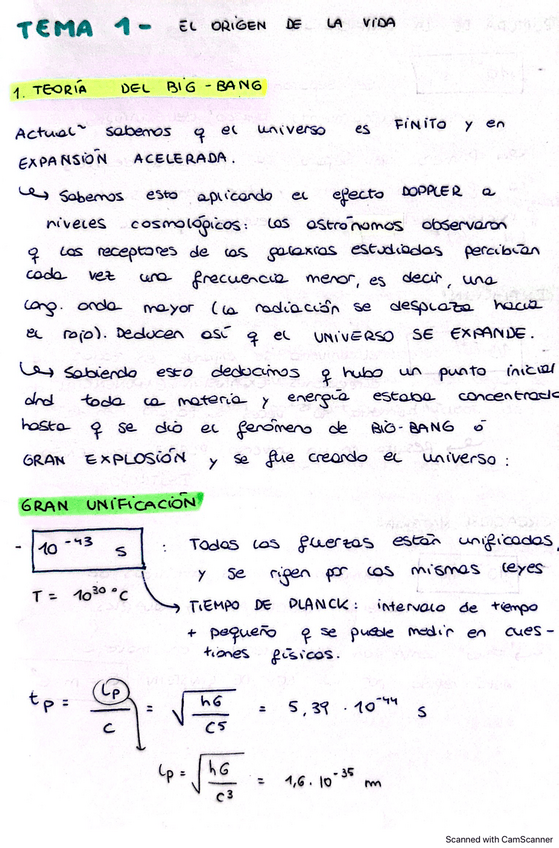 TEMA 1- EL ORIGEN DE LA VIDA
1. TEORÍA DEL BIG-BANG
Actual~ sabemos q el universo es FINITO y en
EXPANSIÓN ACELERADA.
↳ Sabemos esto aplicando el efecto DOPPLER a
niveles cosmológicos: los astrónomos observaron
q los receptores de las galaxias estudiadas percibían
cada vez una frecuencia menor, es decir, una
long. onda mayor (la radiación se desplaza hacia
el rojo). Deducen así q el UNIVERSO SE EXPANDE.
↳ Sabiendo esto deducimos q hubo un punto inicial
dnd toda la materia y energía estaba concentrada
hasta q se dió el fenómeno de BIG-BANG ó
GRAN EXPLOSIÓN y se fue creando el universo:
GRAN UNIFICACIÓN
- 10⁻⁴³ s : Todas las fuerzas están unificadas,
y se rigen por las mismas leyes
T = 10³⁰ °C
→ TIEMPO DE PLANCK: intervalo de tiempo
+ pequeño q se puede medir en cues-
tiones físicas.
tp = lp/c = √(hG/c5) = 5,39 · 10⁻⁴⁴ s
lp = √(hG/c³) = 1,6 · 10⁻³⁵ m
Scanned with CamScanner